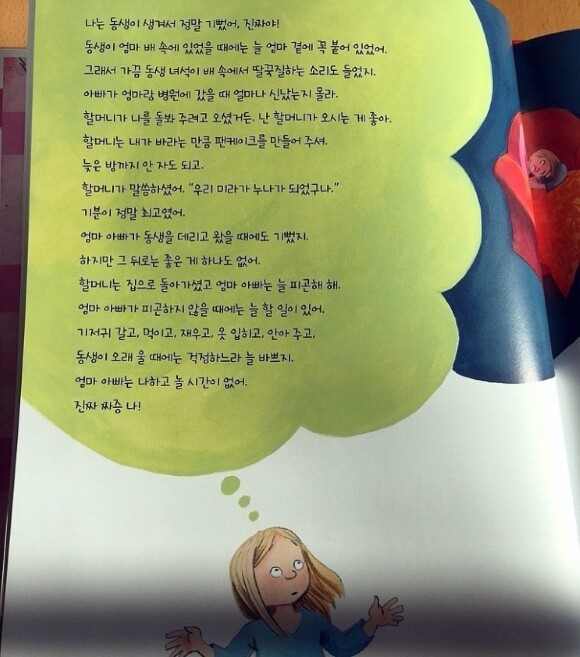 나는 동생이 생겨서 정말 기뻤어, 진짜야!
동생이 엄마 배 속에 있었을 때에는 늘 엄마 곁에 꼭 붙어 있었어.
그래서 가끔 동생 녀석이 배 속에서 딸꾹질하는 소리도 들었지.
아빠가 엄마랑 병원에 갔을 때 얼마나 신났는지 몰라.
할머니가 나를 돌봐 주려고 오셨거든. 난 할머니가 오시는 게 좋아.
할머니는 내가 바라는 만큼 팬케이크를 만들어 주셔.
늦은 밤까지 안 자도 되고.
할머니가 말씀하셨어. “우리 미라가 누나가 되었구나.”
기분이 정말 최고였어.
엄마 아빠가 동생을 데리고 왔을 때에도 기뻤지.
하지만 그 뒤로는 좋은 게 하나도 없어.
할머니는 집으로 돌아가셨고 엄마 아빠는 늘 피곤해 해.
엄마 아빠가 피곤하지 않을 때에는 늘 할 일이 있어.
기저귀 갈고, 먹이고, 재우고, 옷 입히고, 안아 주고,
동생이 오래 울 때에는 걱정하느라 늘 바쁘지.
엄마 아빠는 나하고 놀 시간이 없어.
진짜 짜증 나!